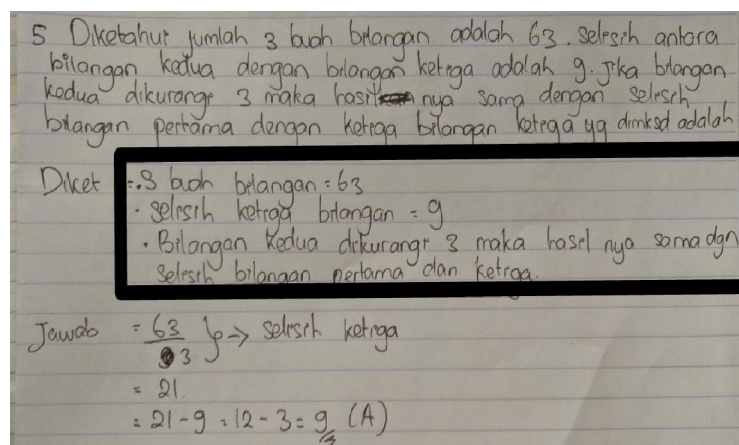 5 Diketahui jumlah 3 buah bilangan adalah 63. selisih antara
bilangan kedua dengan bilangan ketiga adalah 9. jika bilangan
kedua dikurangi 3 maka hasil nya sama dengan selisih
bilangan pertama dengan ketiga bilangan ketiga yg dimksd adalah
Diket = . 3 buah bilangan = 63
. selisih ketiga bilangan = 9
. Bilangan kedua dikurangi 3 maka hasil nya sama dgn
selisih bilangan pertama dan ketiga.
Jawab = 63/3 } => selisih ketiga
= 21.
= 21 - 9 = 12 - 3 = 9 (A)